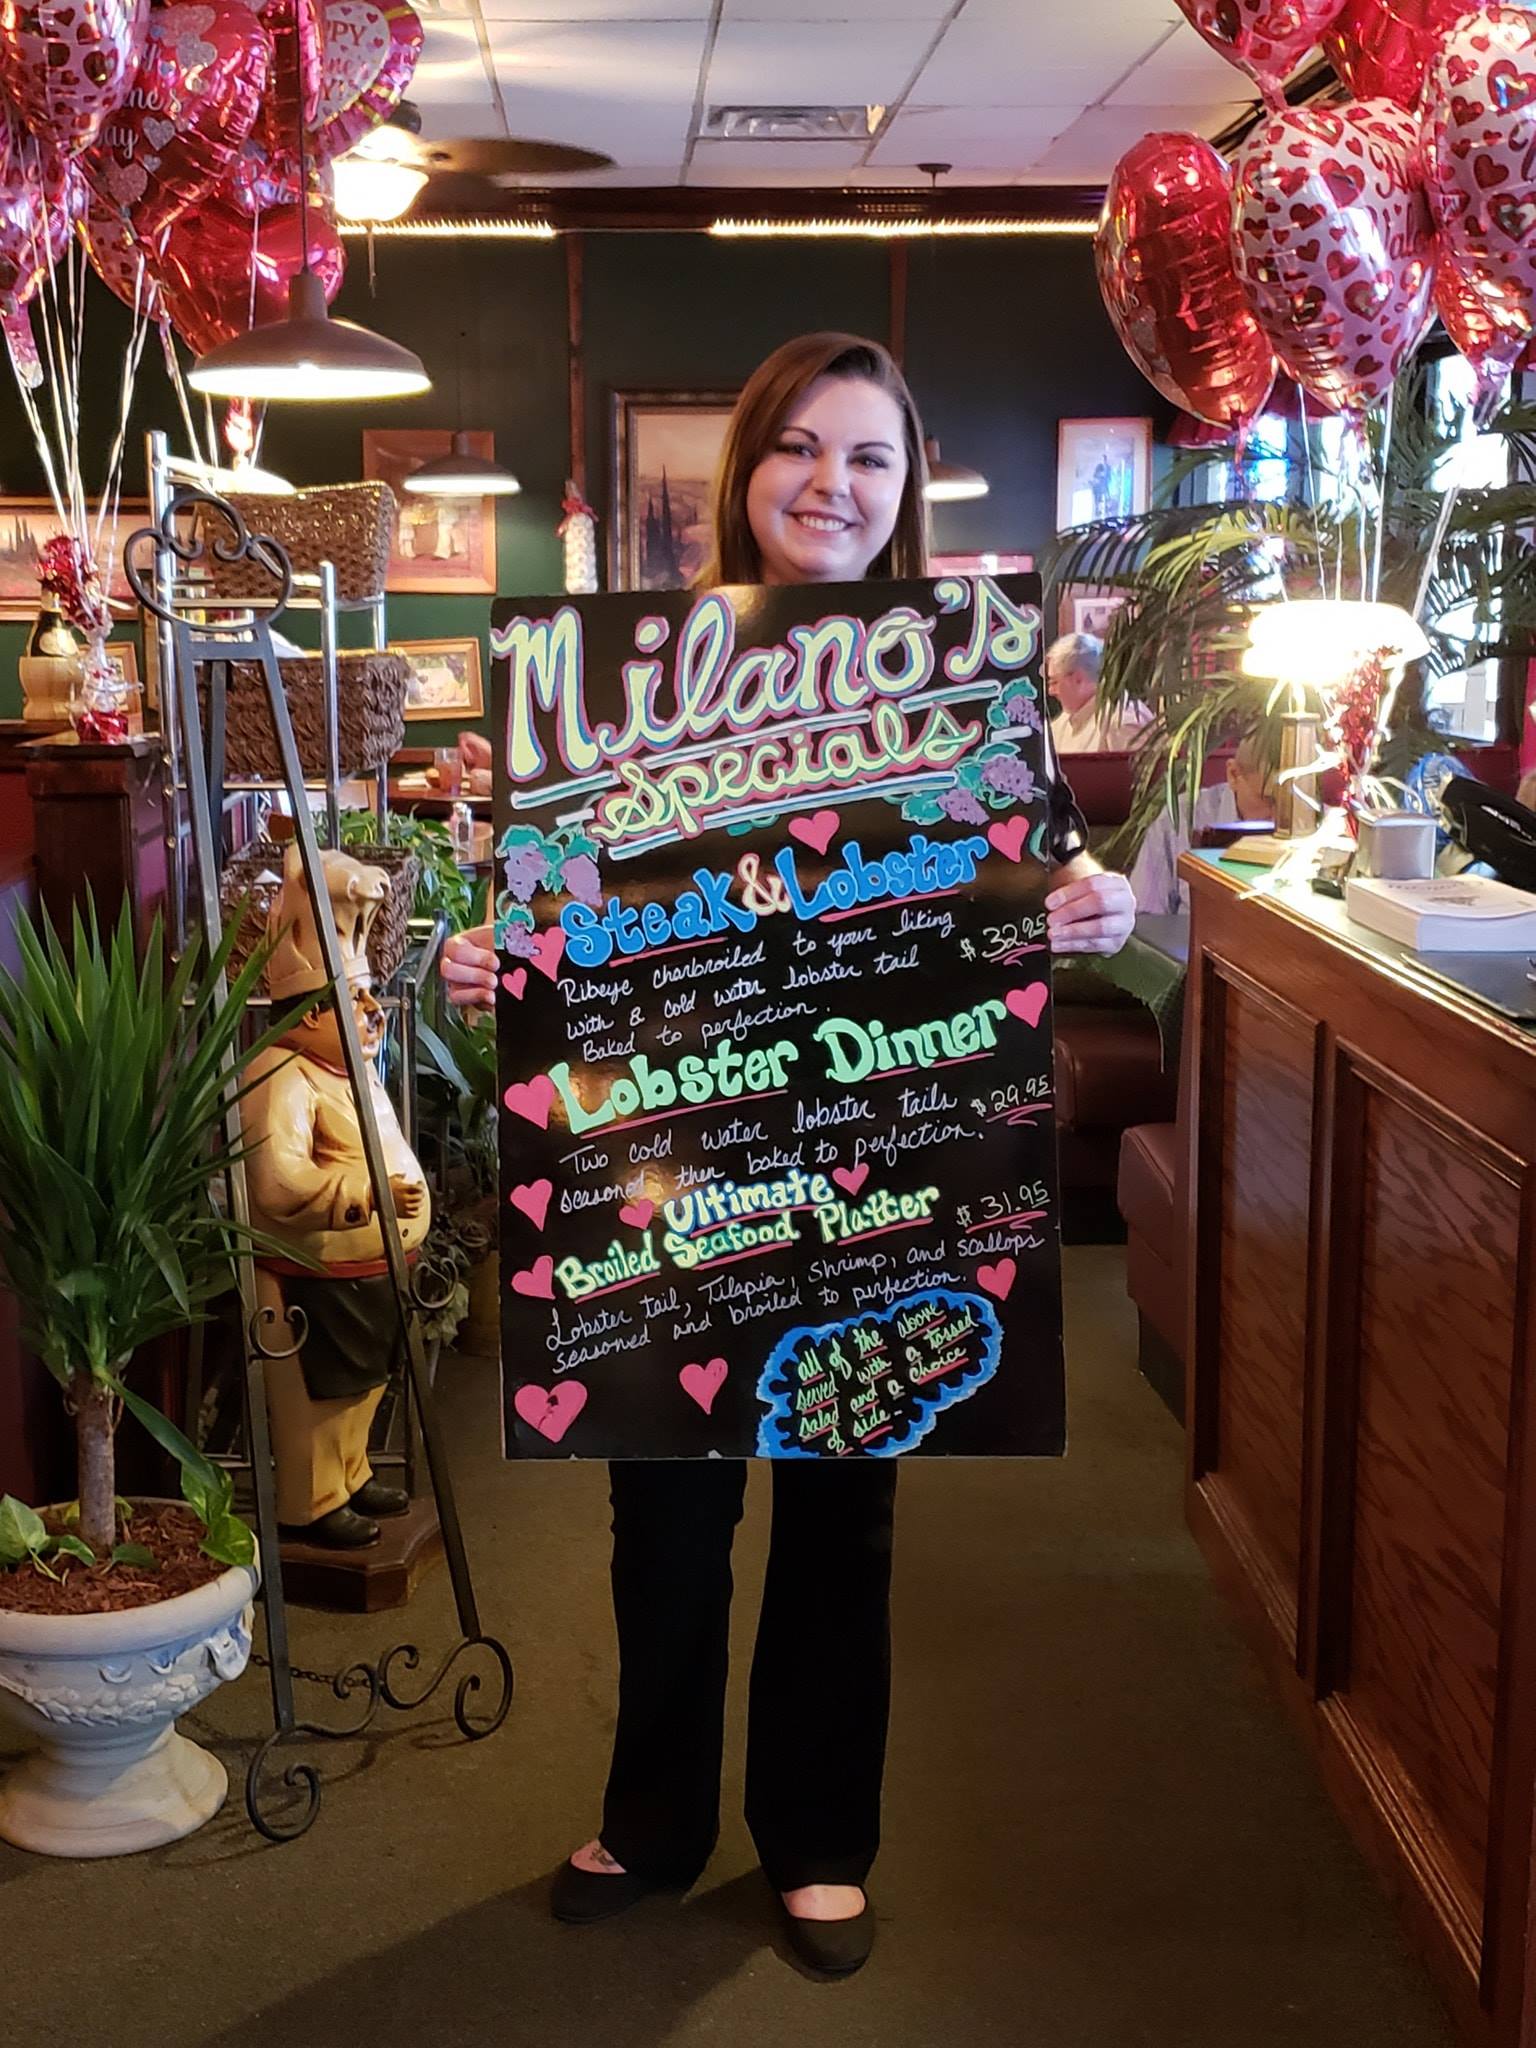 Milano's
Specials
Steak & Lobster
Ribeye charbroiled to your liking
with 8 cold water lobster tail
Baked to perfection.
$ 32.95
Lobster Dinner
Two cold water lobster tails
seasoned then baked to perfection.
$ 29.95
Ultimate
Broiled Seafood Platter
$ 31.95
Lobster tail, Tilapia, Shrimp, and Scallops
seasoned and broiled to perfection.
all of the above
served with a tossed
salad and a choice
of side-